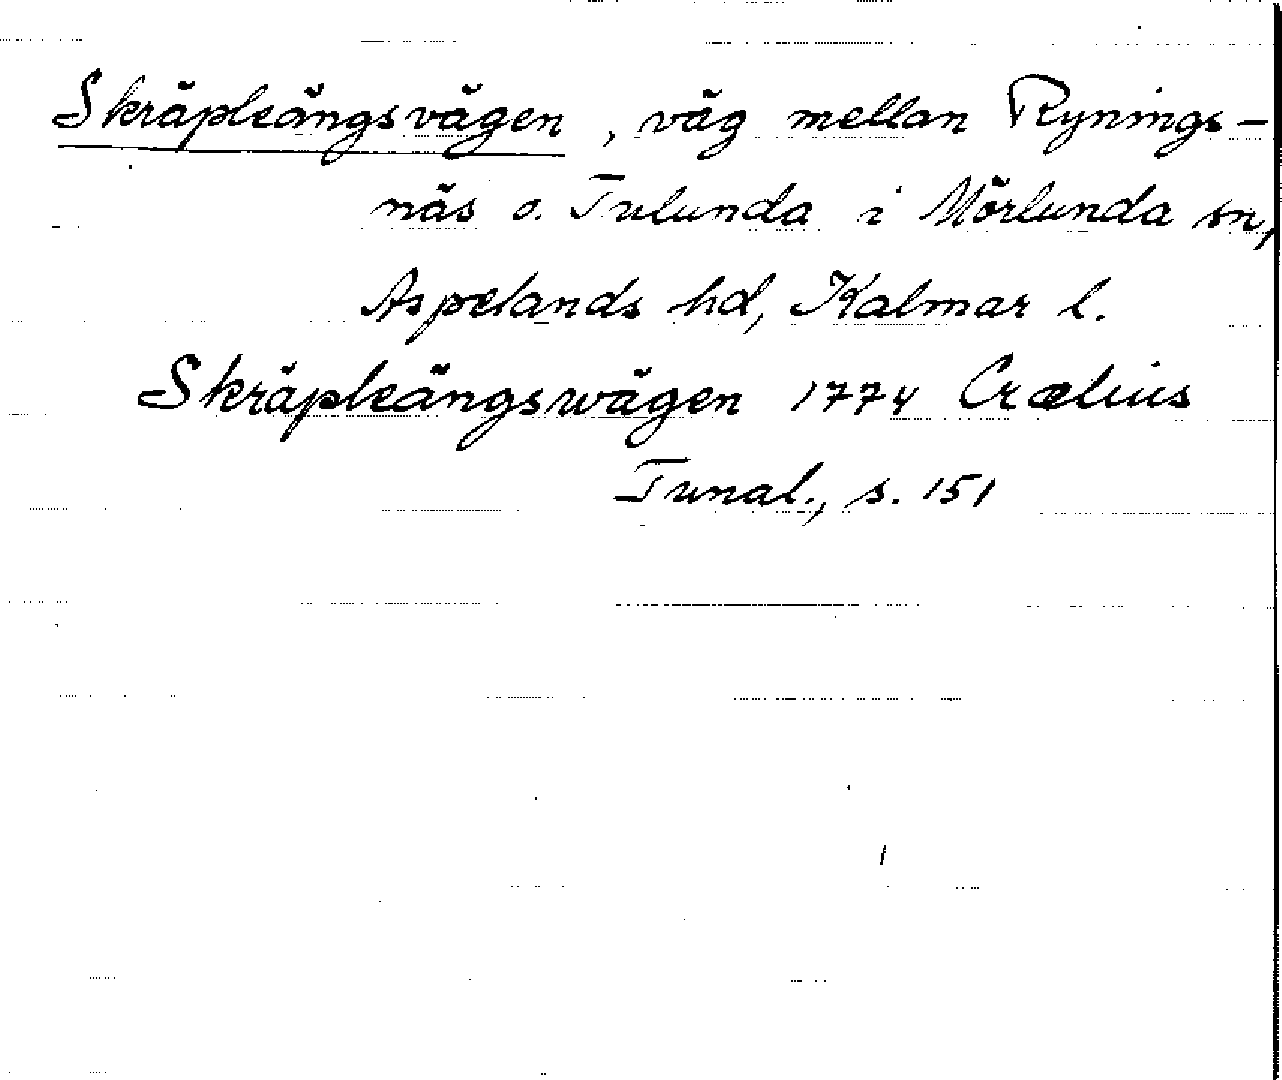 Skräpleängsvägen, väg mellan Rynings-
näs o. Tulunda i Mörlunda sn,
Aspelands hd, Kalmar l.
Skräpleängswägen 1774 Crælius
Tunal., s. 151